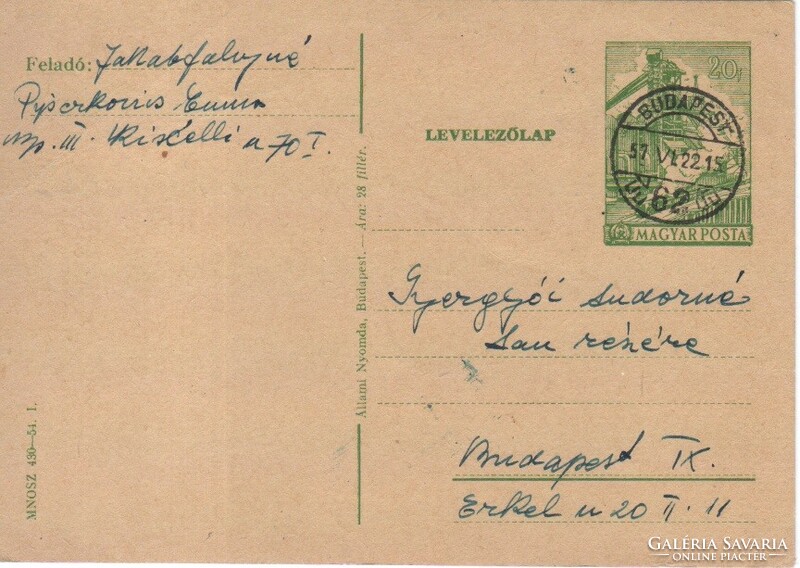 Feladó: Jakabfalvyné
Emma
Bp. III. Kiscelli u 70 I.
LEVELEZŐLAP
20f
BUDAPEST
57 VI.22.15
62
MAGYAR POSTA
Állami Nyomda, Budapest. — Ára: 28 fillér.
MNOSZ 430—54. I.
Gyergyói Sudorné
részére
Budapest IX.
Erkel u 20 II. 11
GALÉRIA SAVARIA
ONLINE PIACTÉR